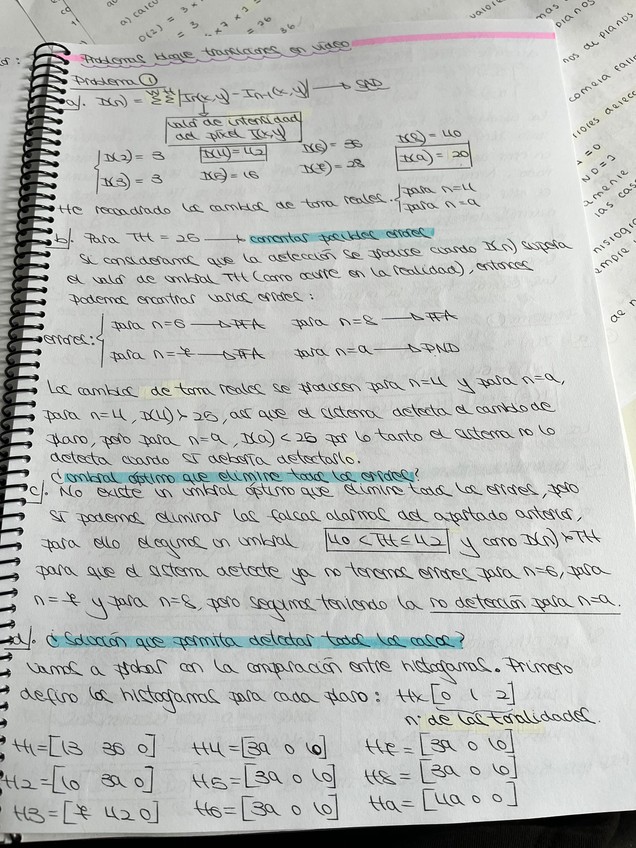 Problemas bloque transiciones en video
Problema ①
a). D(n) = ΣΣ |In(x,y) - In-1(x,y)| → SAD
valor de intensidad
del pixel I(x,y)
D(2) = 3 D(4) = 42 D(6) = 36 D(8) = 40
D(3) = 3 D(5) = 16 D(7) = 28 D(9) = 20
He recuadrado los cambios de toma reales. para n=4
para n=9
b). Para TH = 25 → comentar posibles errores
Si consideramos que la detección se produce cuando D(n) supera
el valor de umbral TH (como ocurre en la realidad), entonces
podemos encontrar varios errores:
errores: para n=6 → PFA para n=8 → PFA
para n=7 → PFA para n=9 → PND
Los cambios de toma reales se producen para n=4 y para n=9,
para n=4, D(4) > 25, así que el sistema detecta el cambio de
plano, pero para n=9, D(9) < 25 por lo tanto el sistema no lo
detecta cuando sí debería detectarlo.
¿umbral óptimo que elimine todos los errores?
c). No existe un umbral óptimo que elimine todos los errores, pero
sí podemos eliminar las falsas alarmas del apartado anterior,
para ello elegimos un umbral 40 < TH ≤ 42 y como D(n) ≥ TH
para que el sistema detecte ya no tenemos errores para n=6, para
n=7 y para n=8, pero seguimos teniendo la no detección para n=9.
d). ¿Solución que permita detectar todos los casos?
Vamos a probar con la comparación entre histogramas. Primero
defino los histogramas para cada plano: Hx [0 1 2]
nº de las tonalidades.
H1 = [13 36 0] H4 = [39 0 10] H7 = [39 0 10]
H2 = [10 39 0] H5 = [39 0 10] H8 = [39 0 10]
H3 = [7 42 0] H6 = [39 0 10] H9 = [49 0 0]